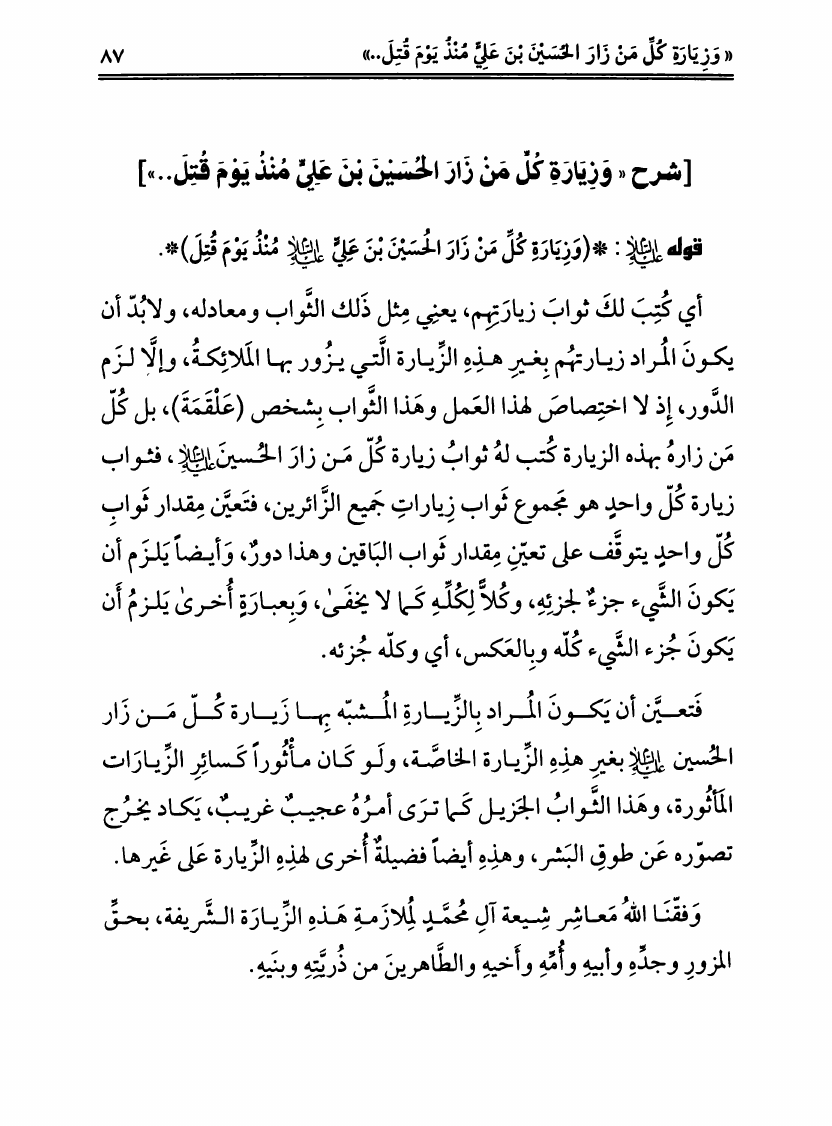 « وَزِيَارَةِ كُلِّ مَنْ زَارَ الحُسَيْنَ بْنَ عَلِيٍّ مُنْذُ يَوْمَ قُتِلَ..» ٨٧
[شرح « وَزِيَارَةِ كُلِّ مَنْ زَارَ الحُسَيْنَ بْنَ عَلِيٍّ مُنْذُ يَوْمَ قُتِلَ..»]
قوله عليه السلام : *(وَزِيَارَةِ كُلِّ مَنْ زَارَ الحُسَيْنَ بْنَ عَلِيٍّ عليه السلام مُنْذُ يَوْمَ قُتِلَ)*.
أي كُتِبَ لكَ ثوابَ زيارَتِهِم، يعنِي مِثل ذَلك الثَّواب ومعادله، ولابُدّ أن
يكونَ المُراد زيارتهُم بِغيرِ هـذِهِ الزِّيارة الَّتي يزُور بها المَلائِكةُ، وإلَّا لزَم
الدَّور، إِذ لا اختِصاصَ لهذا العَمل وهَذا الثَّواب بِشخص (عَلْقَمَة)، بل كُلّ
مَن زارهُ بهذه الزيارة كُتب لهُ ثوابُ زيارة كُلّ مَن زارَ الحُسينَ عليه السلام، فثواب
زيارة كُلّ واحدٍ هو مجَموع ثَواب زِياراتِ جَميع الزَّائرين، فتَعيَّن مِقدار ثَوابِ
كُلّ واحدٍ يتوقَّف على تعيّنِ مِقدار ثَواب البَاقين وهذا دورٌ، وَأيضاً يَلزَم أن
يَكونَ الشَّيء جزءٌ لجزئِهِ، وكُلاًّ لِكُلِّهِ كَما لا يخَفَىٰ، وَبِعبارَةٍ أُخرىٰ يَلزمُ أَن
يَكونَ جُزء الشَّيء كُلّه وبِالعَكس، أي وكلّه جُزئه.
فَتعيَّن أن يَكونَ المُراد بِالزِّيارةِ المُشبّه بِها زَيارة كُلّ مَن زَار
الحُسين عليه السلام بغيرِ هذِهِ الزِّيارة الخاصَّة، ولَو كَان مأثُوراً كَسائِر الزِّيارَات
المَأثُورة، وهَذا الثَّوابُ الجَزيل كَما ترَى أمرُهُ عجيبٌ غريبٌ، يَكاد يخرُج
تصوّره عَن طوقِ البَشر، وهذِهِ أيضاً فضيلةٌ أُخرى لهذِهِ الزِّيارة عَلى غَيرها.
وَفقّنَا اللهُ مَعاشِر شِيعة آلِ مُحمَّدٍ لمُلازَمةِ هَذهِ الزِّيارَة الشَّريفة، بحقِّ
المزورِ وجدِّهِ وأبيهِ وأُمِّهِ وأَخيهِ والطَّاهرينَ من ذُريَّتِهِ وبنَيهِ.